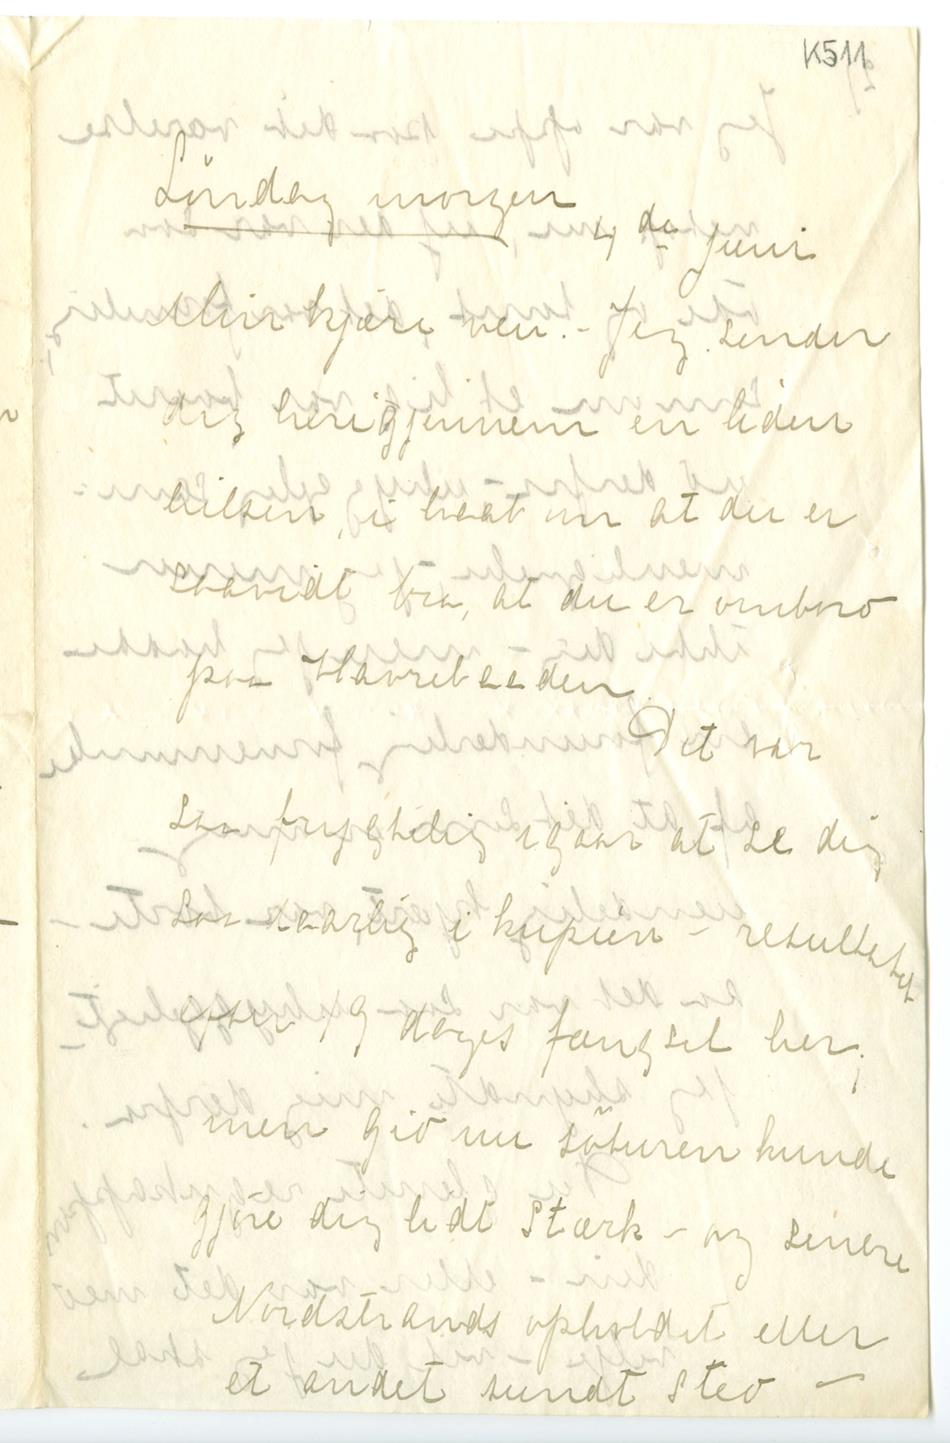 K511
Söndag morgen
4 de Juni
Min kjære ven. - Jeg sender
dig herigjennem en liden
hilsen, i haab om at du er
saavidt bra, at du er ombord
paa Havrebaaden.
Det var
saa frygtelig igaar at se dig
saa daarlig i kupien - resultatet
efter 19 dages fængsel her,
men gid nu söturen kunde
gjöre dig lidt stærk - og senere
Nordstrands opholdet eller
et andet sundt sted -